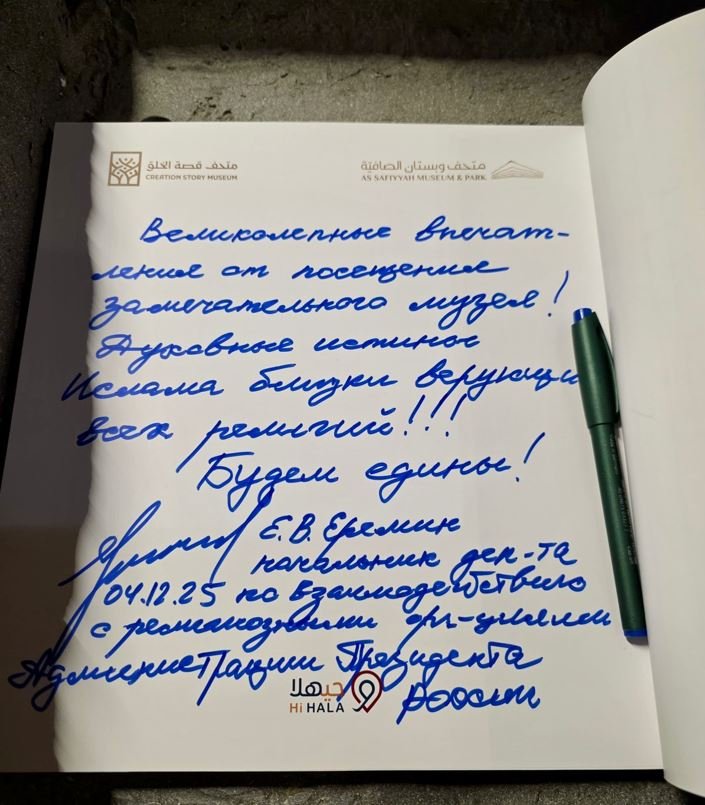 متحف قصة الخلق
CREATION STORY MUSEUM
متحف وبستان الصافيّة
AS SAFIYYAH MUSEUM & PARK
Великолепные впечат-
ления от посещения
замечательного музея!
Духовные истины
Ислама близки верующи
всех религий!!!
Будем едины!
Е.В. Еремин
начальник деп-та
04.12.25 по взаимодействию
с религиозными орг-циями
Администрации Президента
России
حيهلا
Hi HALA